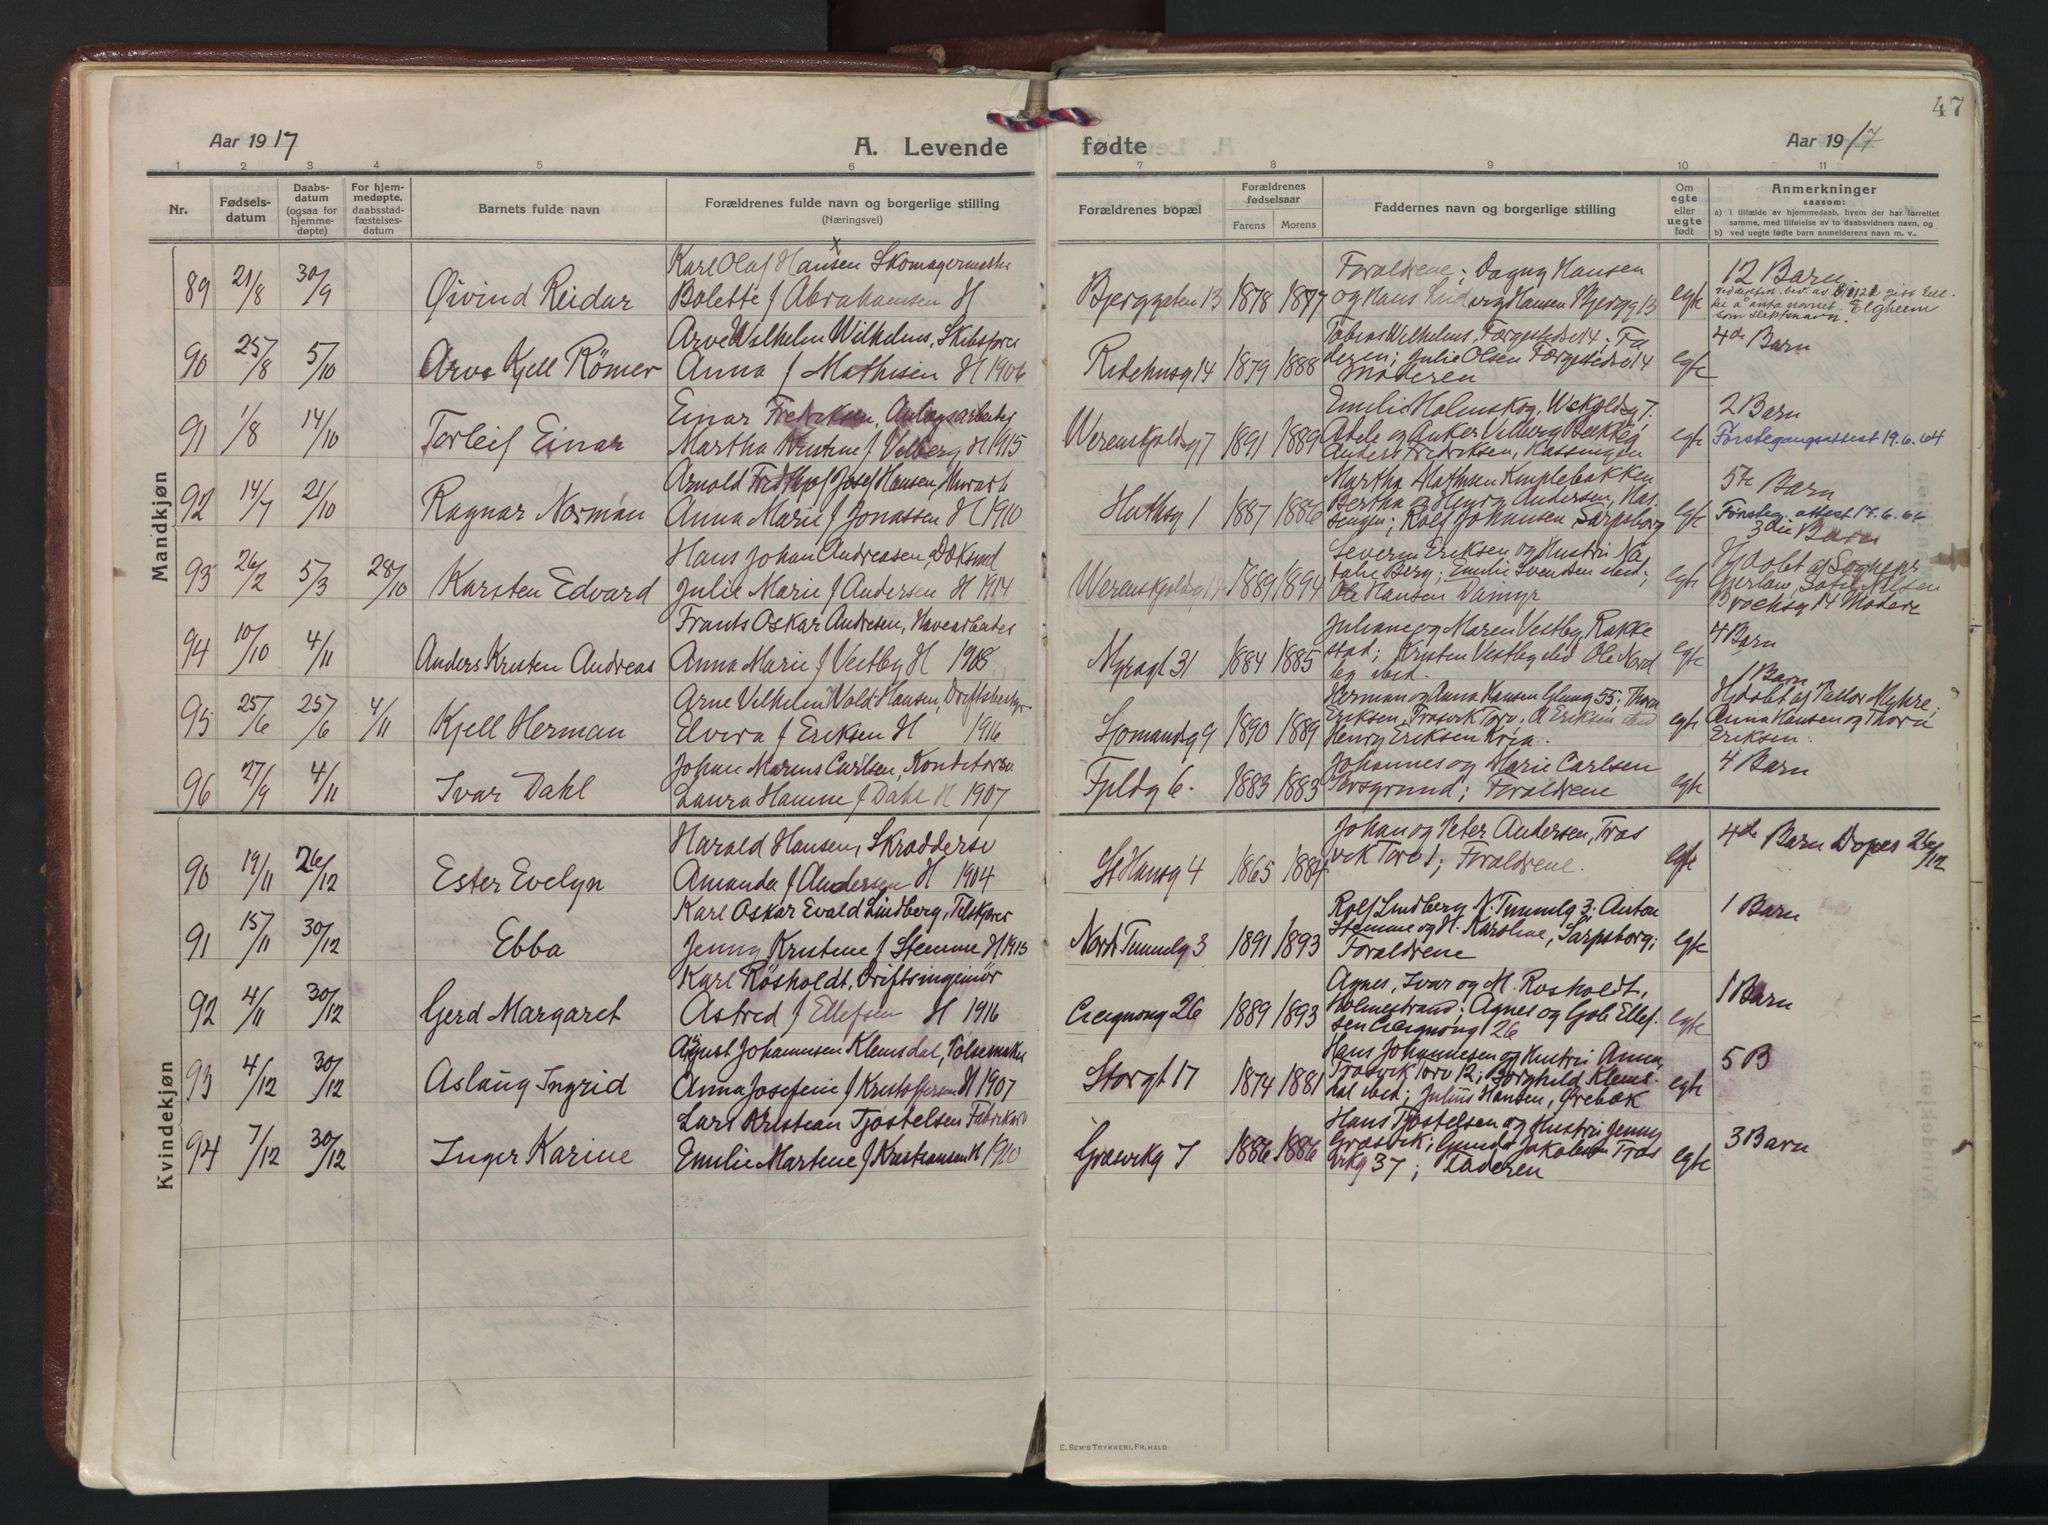 47
Aar 1917
A. Levende
fødte
Aar 1917
1 2 3 4 5 6 7 8 9 10 11
Nr.
Fødsels-
datum
Daabs-
datum
(ogsaa for
hjemme-
døpte)
For hjem-
medøpte,
daabsstad-
fæstelses-
datum
Barnets fulde navn
Forældrenes fulde navn og borgerlige stilling
(Næringsvei)
Forældrenes bopæl
Forældrenes
fødselsaar
Farens Morens
Faddernes navn og borgerlige stilling
Om
egte
eller
uegte
født
Anmerkninger
saasom:
a) I tilfælde av hjemmedaab, hvem der har forrettet
samme, med tilføielse av to daabsvidners navn, og
b) ved uegte fødte barn anmelderens navn m. v..
Mandkjøn
89 21/8 30/9 Øivind Reidar
Karl Olaf Hansen Skomagermester
Bolette f Abrahamsen H
Bjerggaten 13 1878 1877
Forældrene; Dagny Hansen
og Hans Hansen Bjergg 13
egte
12 Barn
Elgheem
som slektsnavn.
90 25/8 5/10 Arve Kjell Römer
Arve Vilhelm Wilhelms, Skibsfører
Anna f Mathisen H 1906
Ridehusg 14 1879 1888
Tobias Wilhelms, Færgestedsv 14; Fa
deren; Julie Olsen Færgestedsv 14
Moderen
egte
4de Barn
91 1/8 14/10 Torleif Einar
Einar Fredriksen, Anlægsarbeider
Martha Kristine f Velberg H 1915
Werenskjoldsg 7 1891 1889
Emilie Holmskog, W.skjoldsg 7;
Adele og Anker Velberg
Anders Fredriksen, Hassingen
egte
2 Barn
Førstegangsattest 19.6.64
92 14/7 21/10 Ragnar Norman
Arnold Fridthjof Josef Hansen, Murarb
Anna Marie f Jonassen H 1910
Huthsg 1 1887 1886
Martha Mathisen Kniplebakken
Bertha og Henry Andersen, Has
singen; Rolf Johansen, Sarpsborg
egte
5te Barn
Førsteg. attest 17.6.66
93 26/2 5/3 28/10 Karsten Edvard
Hans Johan Andreasen, Dæksmd
Julie Marie f Andersen H 1914
Werenskjoldsg 1889 1894
Severin Eriksen og Hustru Na
talie Berg; Emilie Svendsen ibid;
Ole Hansen Dammyr
egte
3die Barn
Hjdøbt af Sognepr
Gjerløw, Sofie Nilsen
Brochsg 14 Modere
94 10/10 4/11 Anders Kristen Andreas
Frants Oskar Andresen, Havearbeider
Anna Marie f Vestby H 1908
Myragt 31 1884 1885
Juliane og Maren Vestby, Rakke
stad; Kristen Vestby ibid Ole Nord
by ibid.
egte
4 Barn
95 25/6 25/6 4/11 Kjell Herman
Arne Vilhelm Vold Hansen, Driftsbestyr
Elvira f Eriksen H 1916
Sjomandsg 9 1890 1889
Herman og Anna Hansen Glmg 55; Thora
Eriksen, Trosvik Torv. A Eriksen ibid
Henry Eriksen Kria.
egte
1 Barn
Hjdøbt af Pastor Myhre;
Anna Hansen og Thora
Eriksen.
96 27/9 4/11 Ivar Dahl
Johan Marius Carlsen, Konditorsv
Laura Hanne f Dahl H 1907
Fjeldg 6. 1883 1883
Johannes og Marie Carlsen
Porsgrund; Forældrene
egte
4 Barn
Kvindekjøn
90 19/11 26/12 Ester Evelyn
Harald Hansen, Skræddersv
Amanda f Andersen H 1904
St Hansg 4 1865 1884
Johan og Peter Andersen, Tros
vik Torv 1; Forældrene.
egte
4de Barn Døpes 26/12
91 15/11 30/12 Ebba
Karl Oskar Evald Lindberg,
Jenny Kristine f Stemme H 1915
Nordr Tunnelg 3 1891 1893
Rolf Lindberg N. Tunnelg 3; Anton
Stemme og H. Karoline, Sarpsborg;
Forældrene
egte
1 Barn
92 4/11 30/12 Gerd Margaret
Karl Røsholdt, Driftsingeniør
Astrid f Ellefsen H 1916
Cicignong 26 1889 1893
Agnes, Ivar og M. Rosholdt,
Holmestrand; Agnes og Gole Ellef
sen Cicignong 26
egte
1 Barn
93 4/12 30/12 Aslaug Ingrid
August Johannesen Klemsdal, Pølsemaker
Anna Josefine f Kristoffersen H 1907
Storgt 17 1874 1881
Hans Johannesen og Hustru Anna,
Trosvik Torv 12; Borghild Klems
dal ibid; Julius Hansen, Ørebæk
egte
5 B
94 7/12 30/12 Inger Karine
Lars Kristian Tjøstelsen Fabrikarb
Emilie Martine f Kristiansen H 1910
Græsvikg 7 1886 1886
Hans Tjøstelsen og Hustru Jenny
Græsvik; Gunda Jakobsen Tros
vikg 37; Faderen
egte
3 Barn
E. SEM'S TRYKKERI, FR.HALD